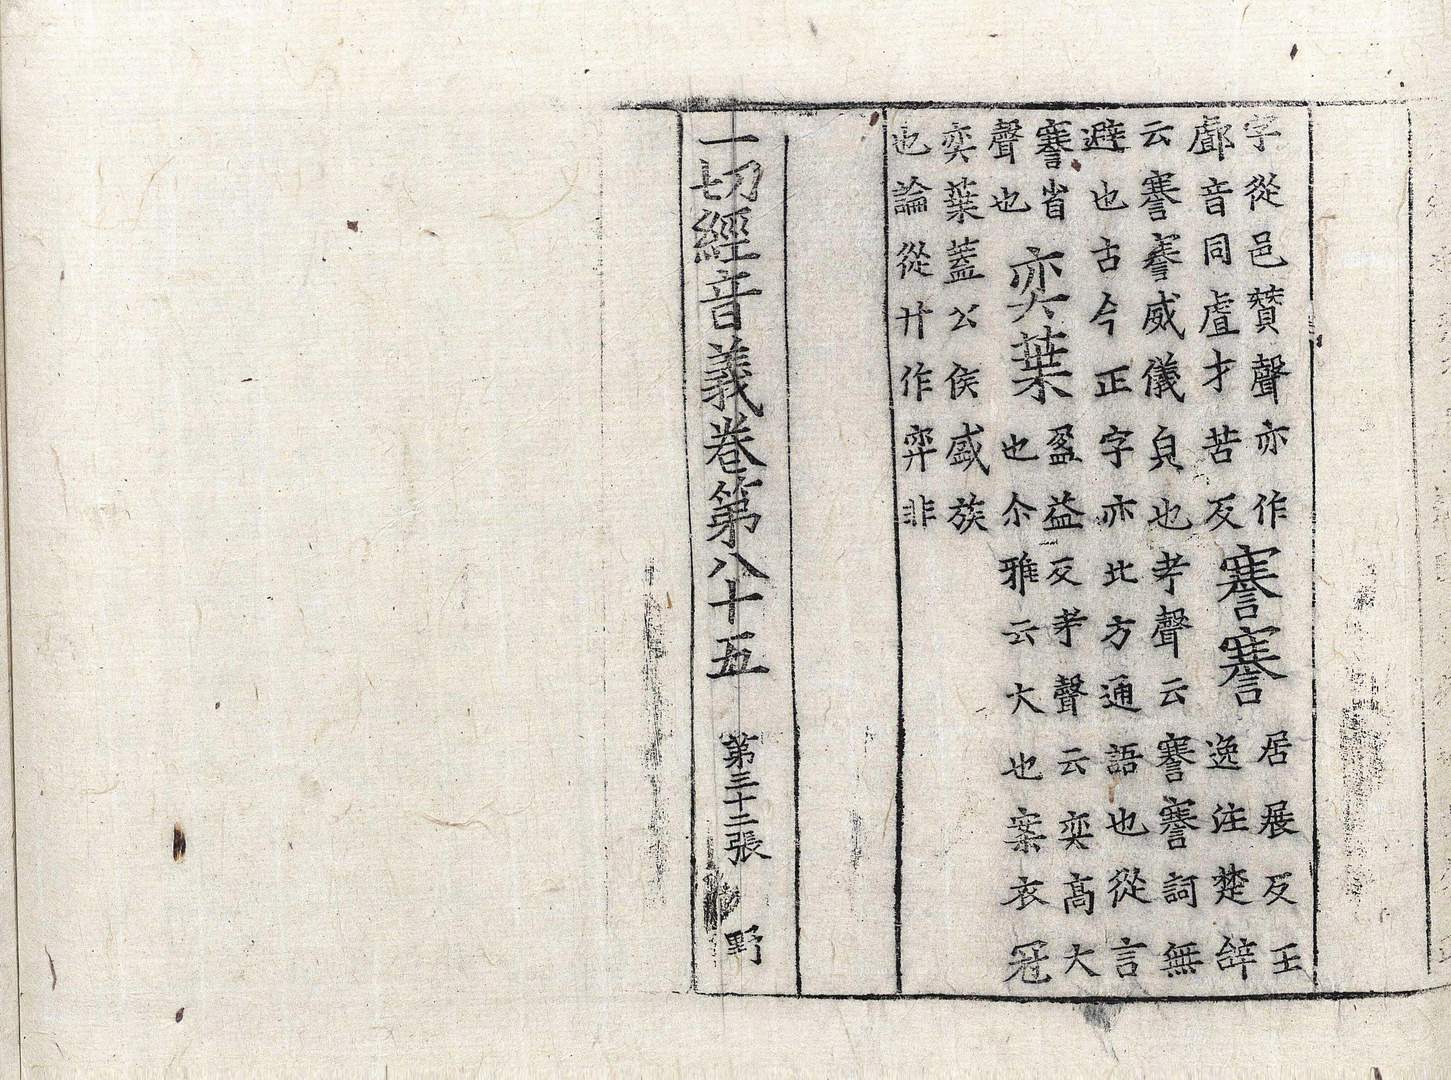 字從邑贊聲亦作
䣜音同虘才苦反
謇謇
居展反王
逸注楚辭
云謇謇威儀皃也考聲云謇謇詞無
避也古今正字亦比方通語也從言
謇省
聲也
奕葉
盈益反考聲云奕高大
也尒雅云大也案衣冠
奕葉蓋公侯盛族
也論從廾作弈非
一切經音義卷第八十五 第三十二張 野